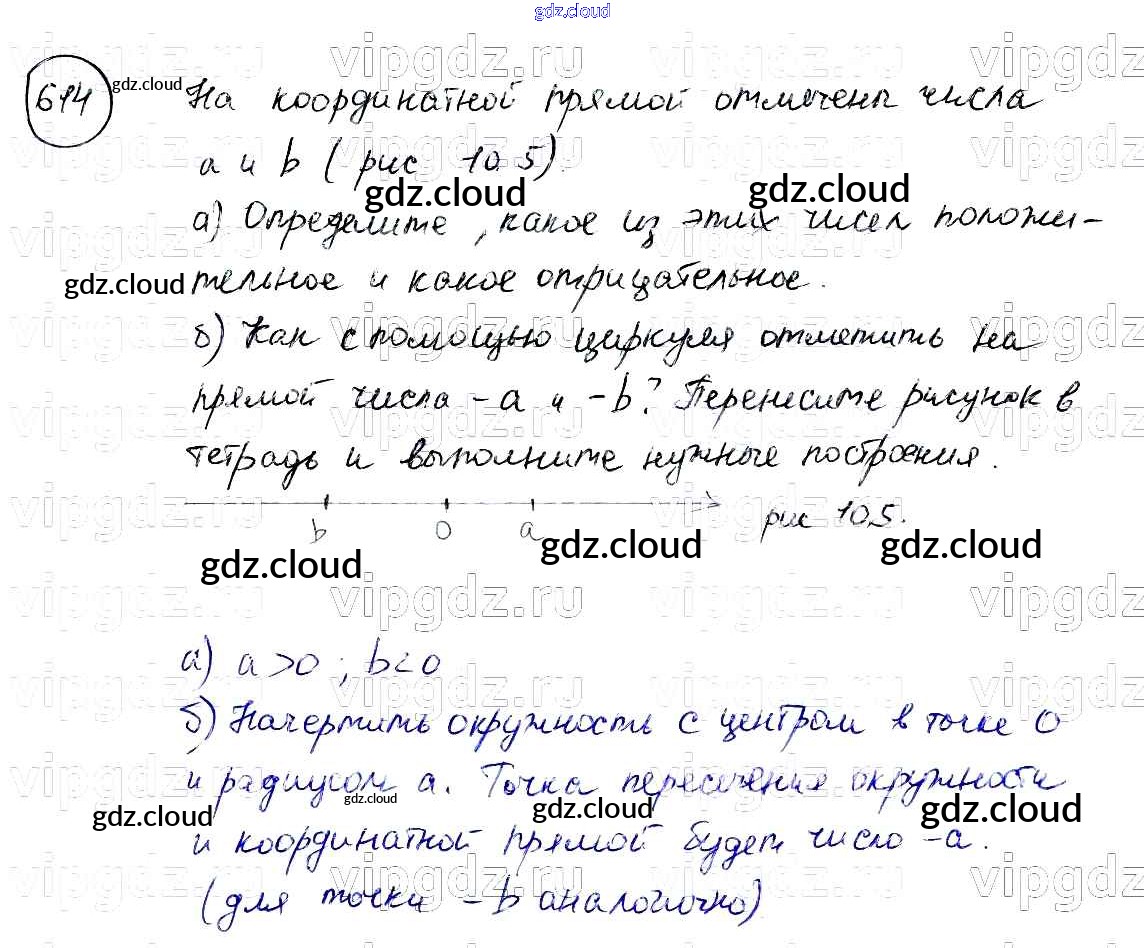 gdz.cloud
614 gdz.cloud На координатной прямой отмечены числа
а и b (рис 10.5)
gdz.cloud gdz.cloud
а) Определите, какое из этих чисел положи-
gdz.cloud тельное и какое отрицательное.
б) Как с помощью циркуля отметить на
прямой числа -a и -b? Перенесите рисунок в
тетрадь и выполните нужные построения.
b 0 a рис 10.5.
gdz.cloud gdz.cloud gdz.cloud
vipgdz.ru vipgdz.ru vipgdz.ru vipgdz.ru
а) a>0 ; b<0
б) Начертить окружность с центром в точке 0
и радиусом a. Точка пересечения окружности
gdz.cloud gdz.cloud gdz.cloud gdz.cloud
и координатной прямой будет число -a.
(для точки -b аналогично)